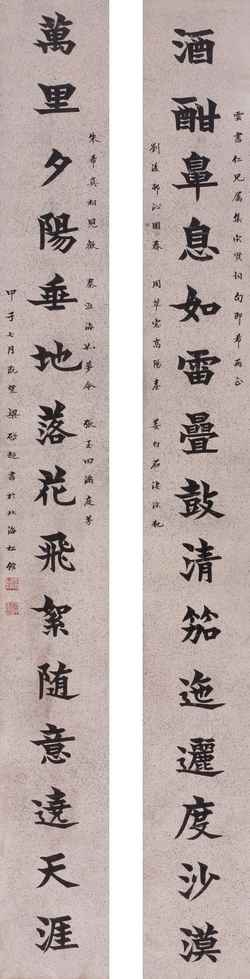 雲書仁兄屬集宋賢詞句即希兩正
酒酣鼻息如雷疊鼓清笳迤邐度沙漠
劉後邨沁園春 周草窗高陽臺 姜白石淒涼犯
朱希真相見歡 秦淮海如夢令 張玉田滿庭芳
萬里夕陽垂地落花飛絮随意遶天涯
甲子七月既望 梁啟超書於北海松館